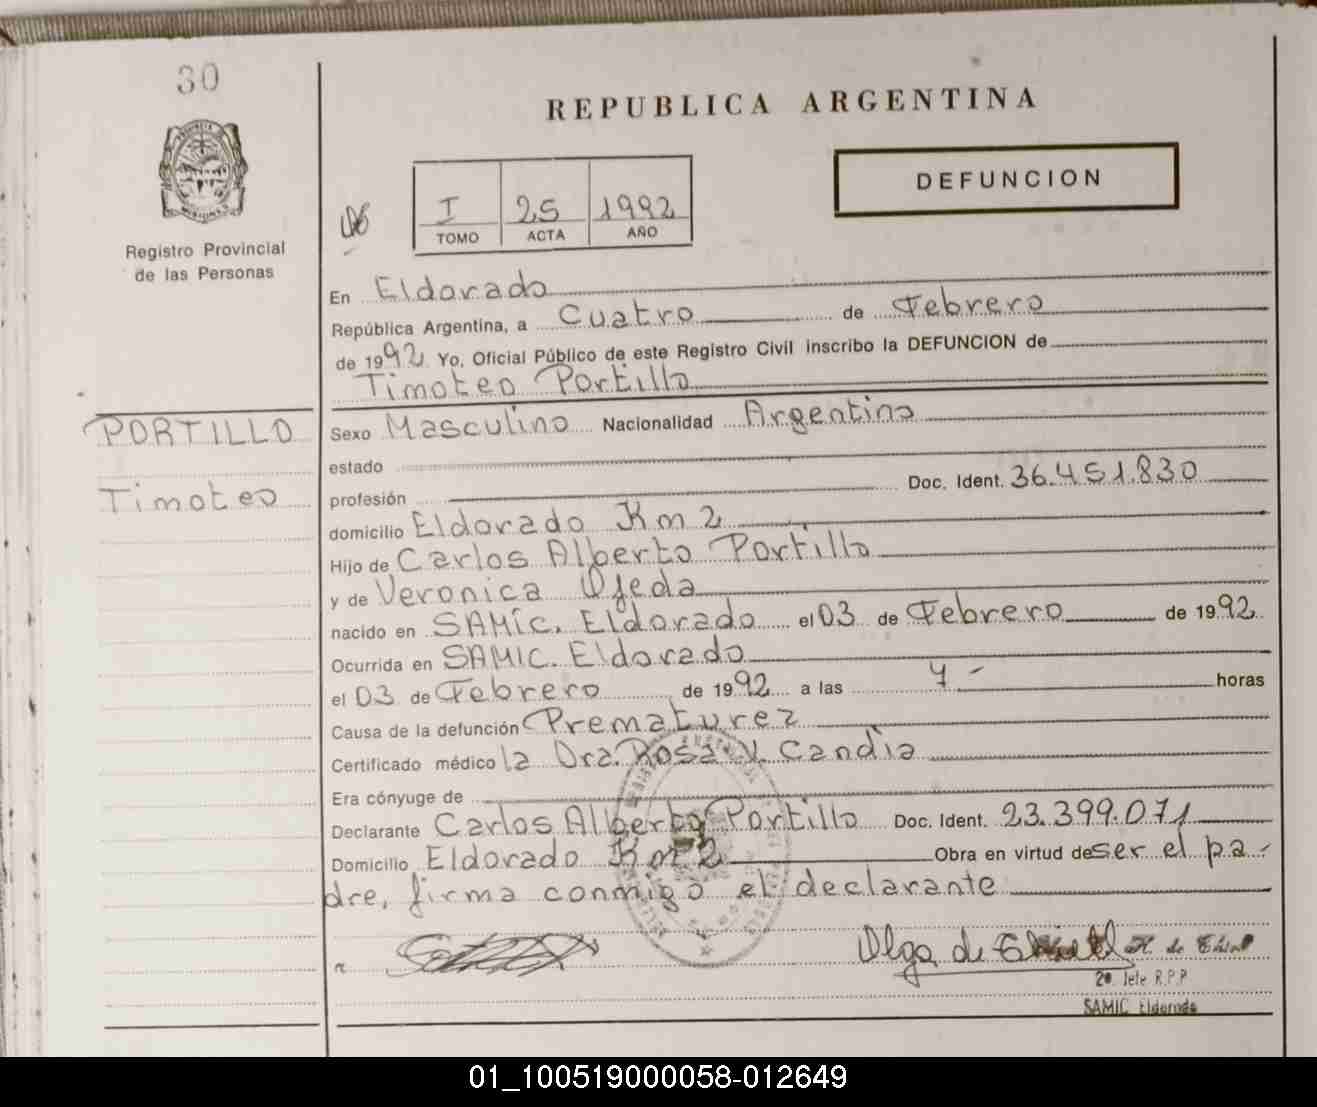 30
REPUBLICA ARGENTINA
DEFUNCION
I 25 1992
TOMO ACTA AÑO
Registro Provincial
de las Personas
En Eldorado
República Argentina, a Cuatro de Febrero
de 1992 Yo, Oficial Público de este Registro Civil inscribo la DEFUNCION de
Timoteo Portillo
PORTILLO
Timoteo
Sexo Masculino Nacionalidad Argentino
estado
profesión Doc. Ident. 36.451.830
domicilio Eldorado Km 2
Hijo de Carlos Alberto Portillo
y de Veronica Ojeda
nacido en SAMIC. Eldorado el 03 de Febrero de 1992
Ocurrida en SAMIC. Eldorado
el 03 de Febrero de 1992 a las horas
Causa de la defunción Prematurez
Certificado médico la Dra. Rosa V. Candia
Era cónyuge de
Declarante Carlos Alberto Portillo Doc. Ident. 23.399.071
Domicilio Eldorado Km 2 Obra en virtud de ser el pa-
dre, firma conmigo el declarante
Olga de H. de
2º. Jefe R.P.P
SAMIC Eldorado
01_100519000058-012649